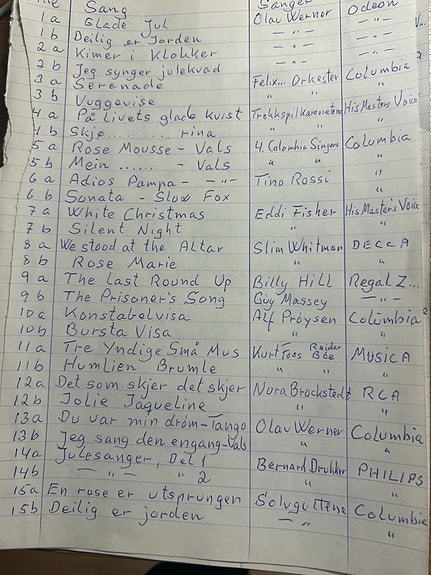 Sang Sanger
1a Glade Jul Olav Werner Odeon
1b Deilig er Jorden — " — — " —
2a Kimer i Klokker — " — — " —
2b Jeg synger julekvad — " — — " —
3a Serenade Felix... Orkester Columbia
3b Vuggevise " "
4a På Livets glade kvist Trekkspilkameratene His Masters Voice
4b Skjø......... rina " "
5a Rose Mousse - Vals 4 Colombia Singers Columbia
5b Mein ...... - Vals " " "
6a Adios Pampa - — " — Tino Rossi "
6b Sonata - Slow Fox " "
7a White Christmas Eddi Fisher His Masters Voice
7b Silent Night " "
8a We stood at the Altar Slim Whitman DECCA
8b Rose Marie " "
9a The Last Round Up Billy Hill Regal Z...
9b The Prisoner's Song Guy Massey — " —
10a Konstabelvisa Alf Prøysen Columbia
10b Bursta Visa " "
11a Tre Yndige Små Mus Kurt Foss Reidar Bøe MUSICA
11b Humlien Brumle " "
12a Det som skjer det skjer Nora Brockstedt RCA
12b Jolie Jaqueline " "
13a Du var min drøm - Tango Olav Werner Columbia
13b Jeg sang den engang - Vals " "
14a Julesanger, Del 1 Bernard Drukker PHILIPS
14b — " — " 2 " "
15a En rose er utsprungen Sølvguttene Columbia
15b Deilig er jorden — " — "